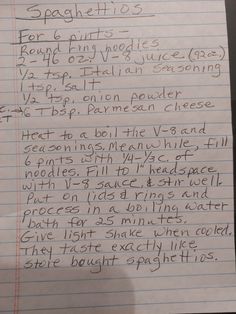 Spaghettios
For 6 pints -
Round ring noodles
2 - 46 oz. V-8 juice (92 oz)
1/2 tsp. Italian Seasoning
1 tsp. salt
1/2 tsp. onion powder
6 Tbsp. Parmesan cheese
Heat to a boil the V-8 and
seasonings. Meanwhile, fill
6 pints with 1/4-1/3 c. of
noodles. Fill to 1" headspace
with V-8 sauce, & stir well.
Put on lids & rings and
process in a boiling water
bath for 25 minutes.
Give light shake when cooled.
They taste exactly like
store bought spaghettios.